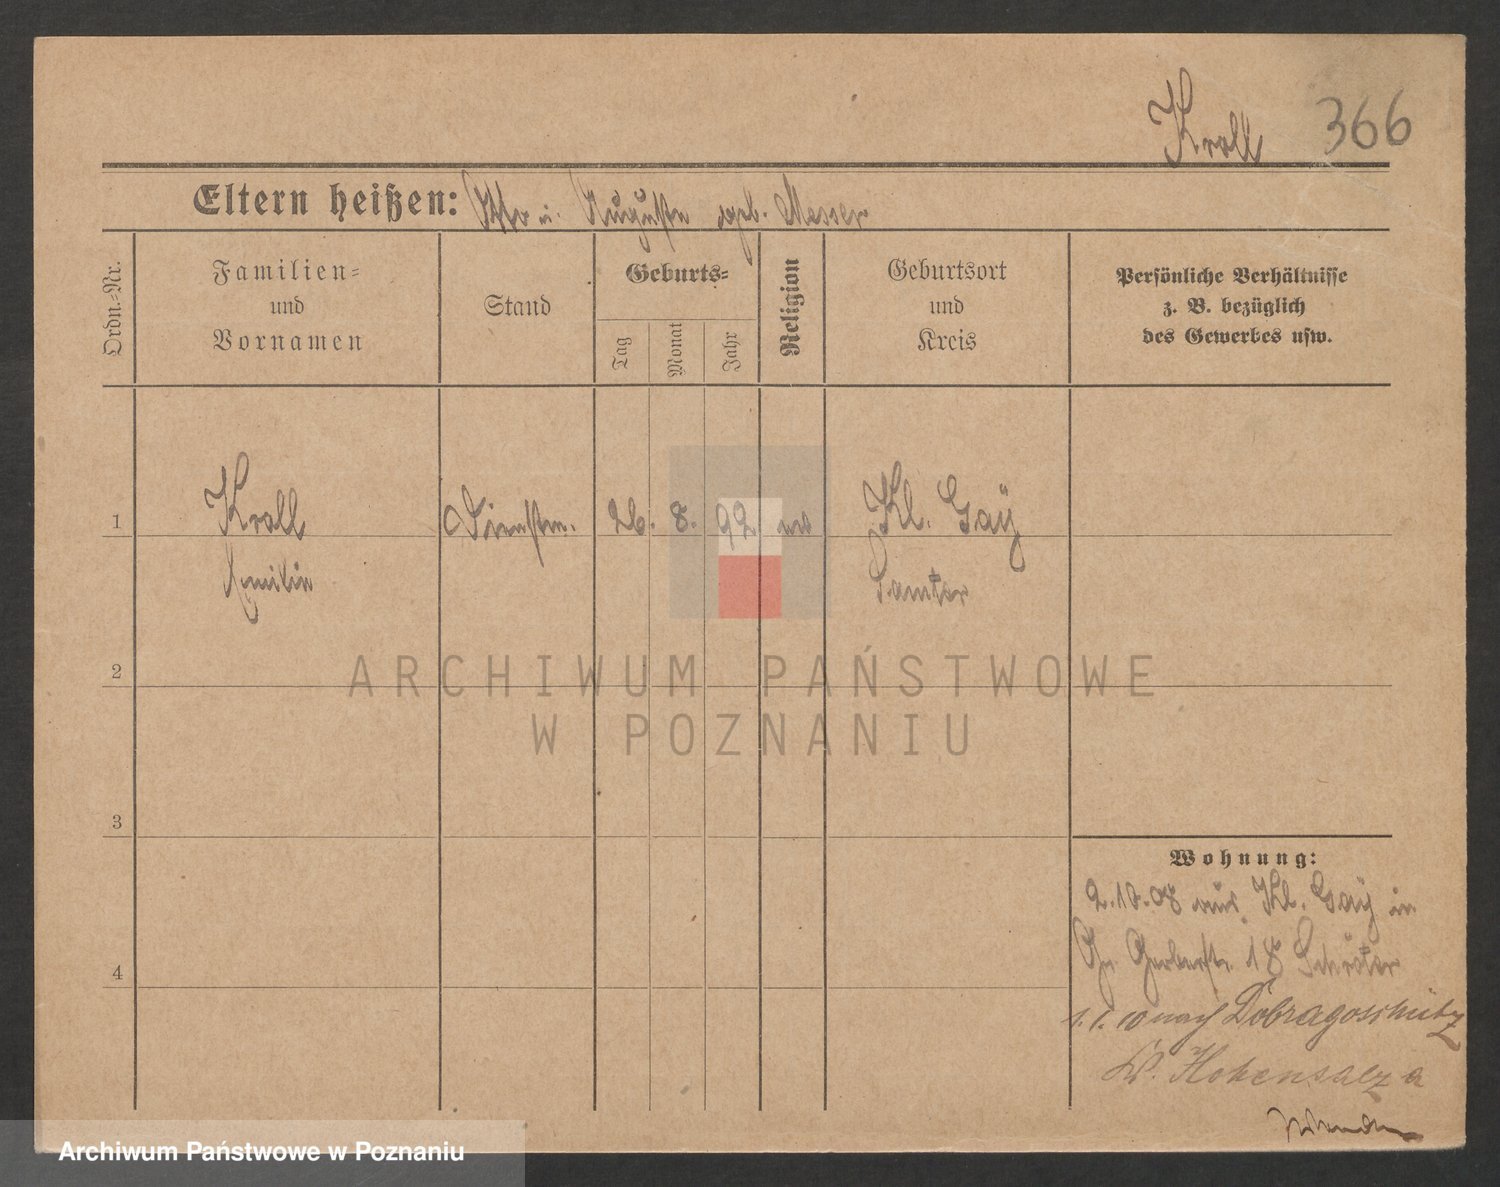 Kroll 366
Eltern heißen: Otto u. Auguste geb. Messer
Ordn.-Nr.
Familien-
und
Vornamen
Stand
Geburts-
Tag
Monat
Jahr
Religion
Geburtsort
und
Kreis
Persönliche Verhältnisse
z. B. bezüglich
des Gewerbes usw.
1 Kroll Dienstm. 26. 8. 92 ev Kl. Gay
Emilie Samter
2
ARCHIWUM PAŃSTWOWE
W POZNANIU
3
Wohnung:
2.10.08 aus Kl. Gay in
Gr. Gerberstr. 18
4
1.1.10 nach Dobragoschütz
Kr. Hohensalza
Archiwum Państwowe w Poznaniu